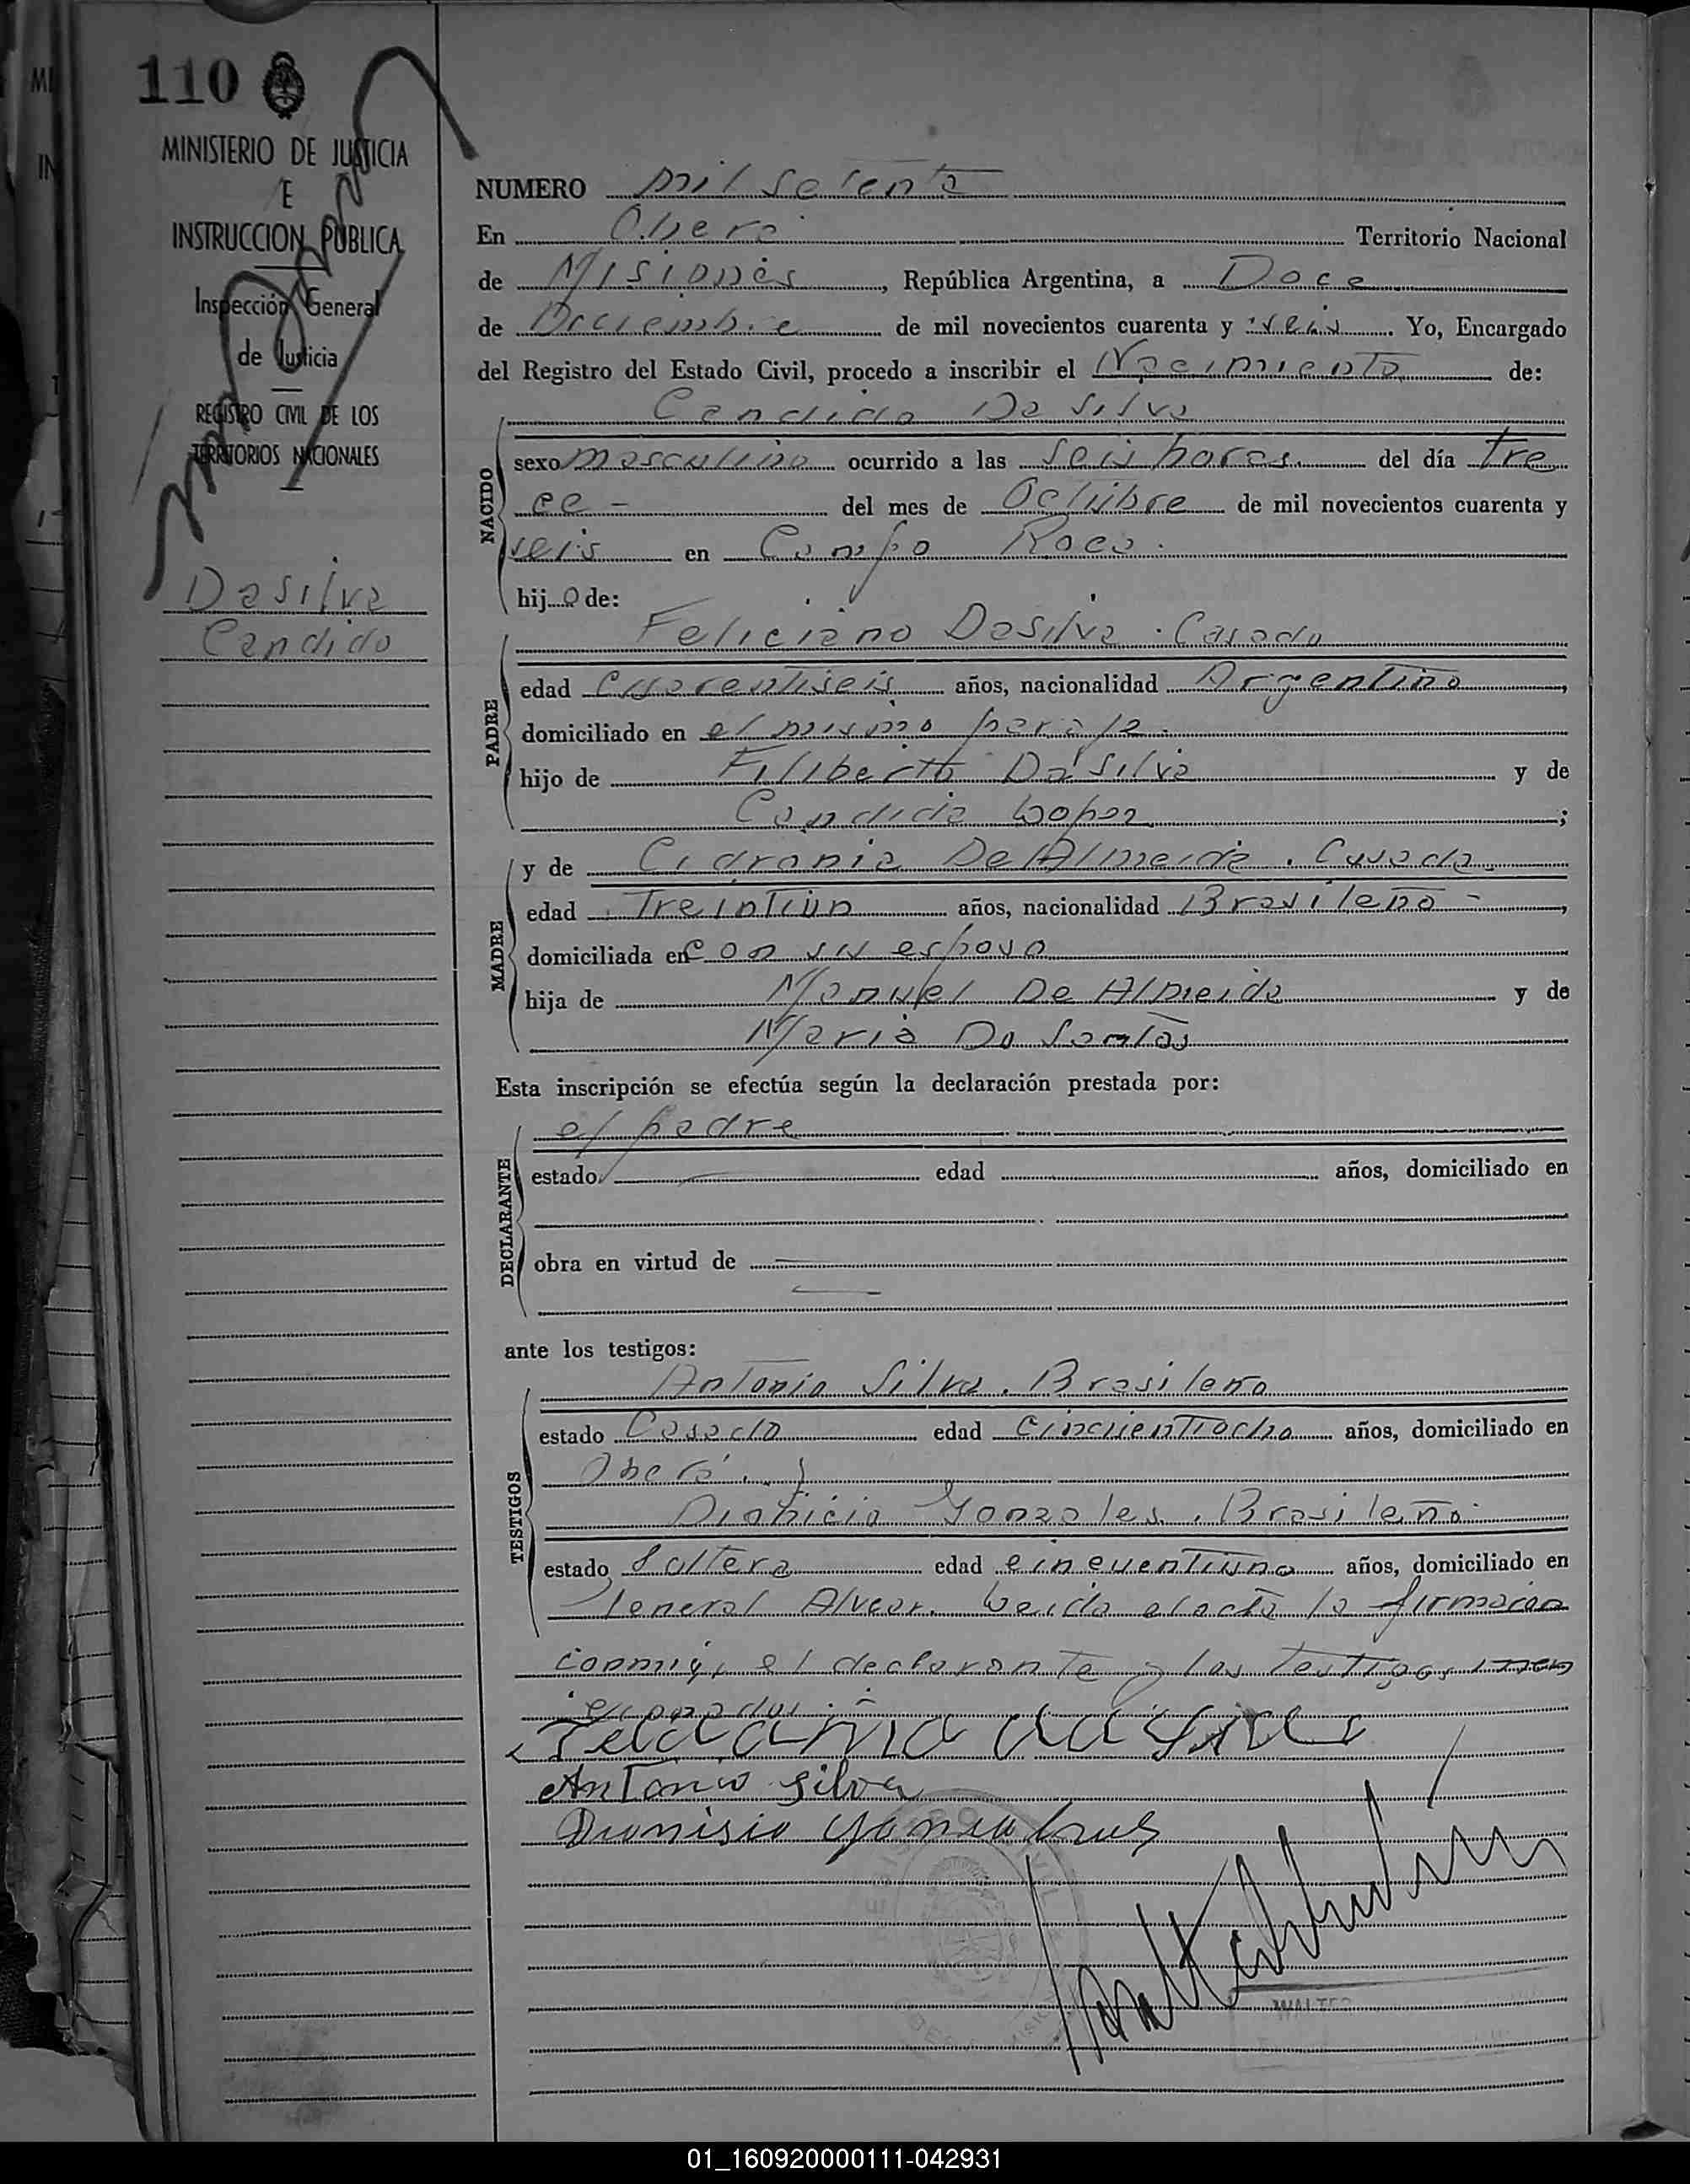 110
MINISTERIO DE JUSTICIA
E
INSTRUCCION PUBLICA
Inspección General
de Justicia
REGISTRO CIVIL DE LOS
TERRITORIOS NACIONALES
Dasilva
Candido
NUMERO mil setenta
En Oberá Territorio Nacional
de Misiones, República Argentina, a Doce
de Diciembre de mil novecientos cuarenta y seis. Yo, Encargado
del Registro del Estado Civil, procedo a inscribir el Nacimiento de:
Candido Da Silva
NACIDO
sexo masculino ocurrido a las seis horas. del día tre
ce - del mes de Octubre de mil novecientos cuarenta y
seis en Campo Roca.
hijo de:
Feliciano Dasilva. Casado
PADRE
edad Cuarentiseis años, nacionalidad Argentino,
domiciliado en el mismo paraje.
hijo de Filiberto Da Silva y de
Candida Lopez;
y de Cidrania De Almeida. Casada
MADRE
edad Treintiun años, nacionalidad Brasileña -,
domiciliada en Con su esposo
hija de Manuel De Almeida y de
Maria Do Santos
Esta inscripción se efectúa según la declaración prestada por:
el padre
DECLARANTE
estado edad años, domiciliado en
obra en virtud de
ante los testigos:
Antonio Silva. Brasileño
TESTIGOS
estado Casado edad Cincuentiocho años, domiciliado en
Oberá. y
Dionicio Gonzales. Brasileño.
estado Soltero edad cincuentiuno años, domiciliado en
General Alvear. Leida el acta la firmaron
conmigo el declarante y los testigos
Antonio Silva
Dionisio
REGISTRO CIVIL
WALTER
01_160920000111-042931